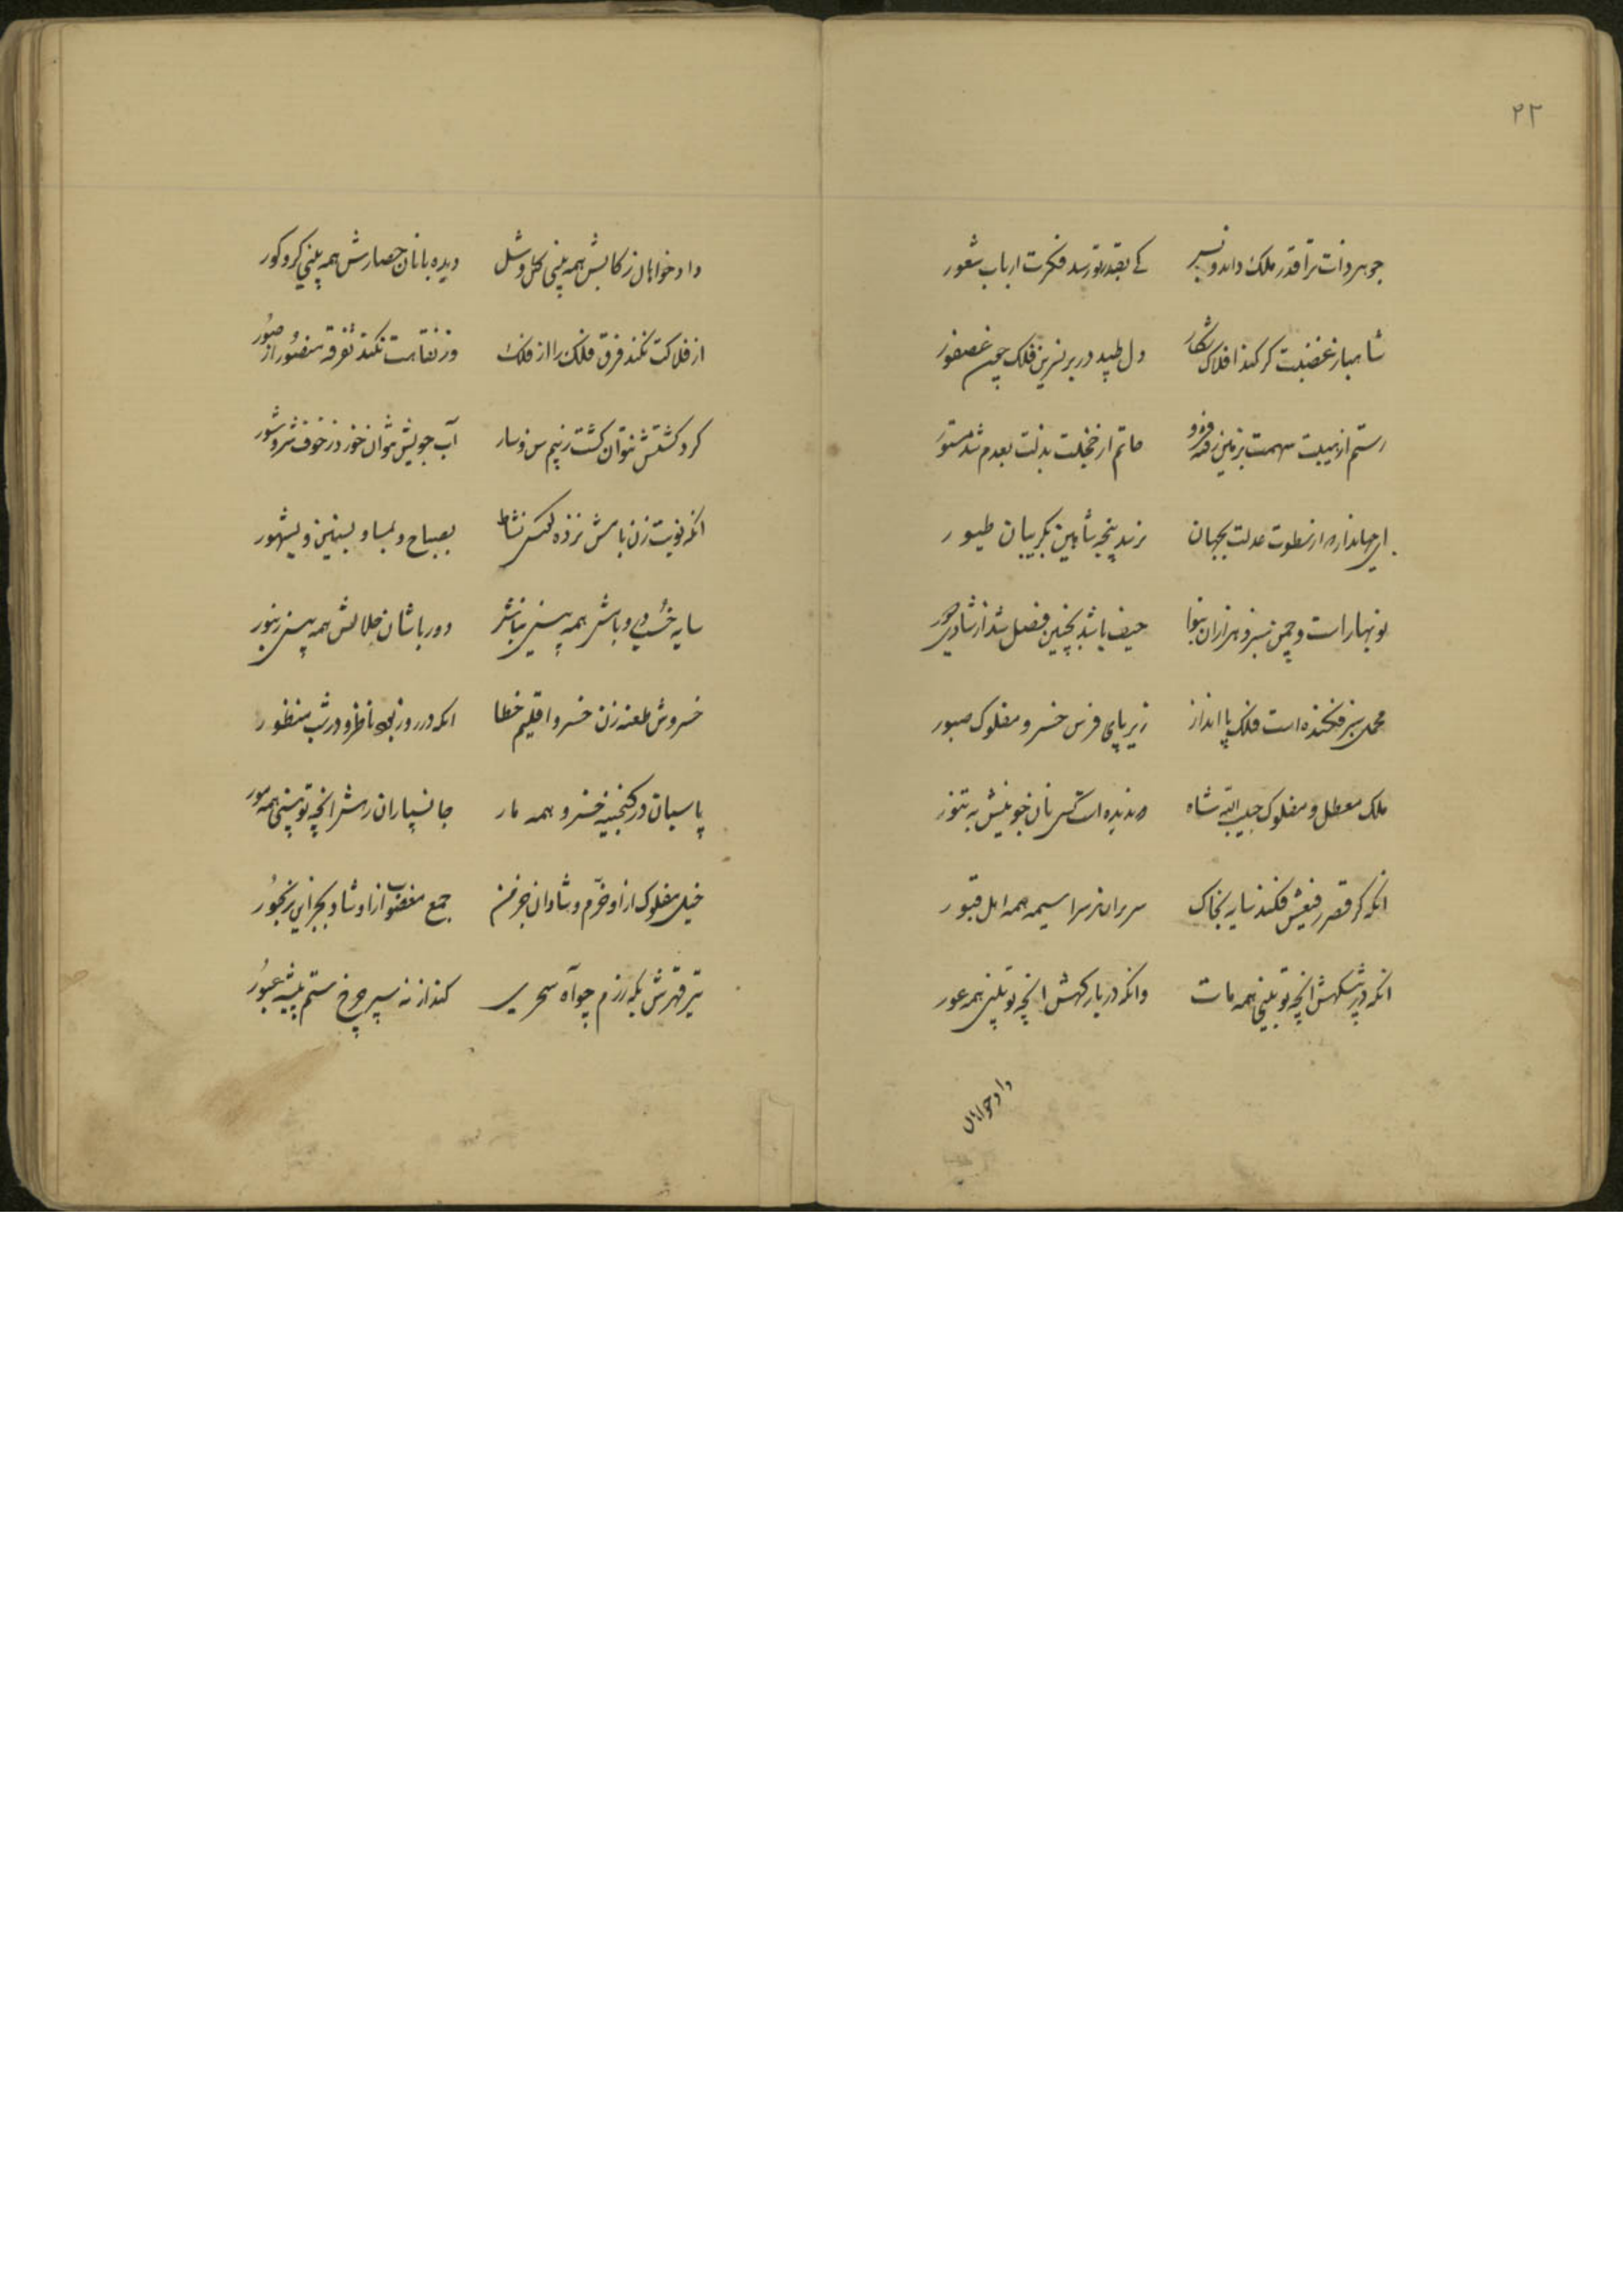 ۲۲
جوهر ذات ترا قدر ملک داند و بس کے بقدر تو رسد فکرت ارباب شعور
شاهباز غضبت گر کند افلاک شکار دل طپد در بر نسرین فلک چون عصفور
رستم از هیبت سهمت بزمین رفته فرو حاتم از خجلت بذلت بعدم شد مستور
ای جهاندار از سطوت عدلت بجهان نزند پنجه شاهین بگریبان طیور
نوبهار است و چمن سبز و هزاران بنوا حیف باشد بچنین فصل شد از شادی دور
مخمل سبز فکنده است فلک پا انداز زیر پای فرس خسرو مفلوک صبور
ملک معطل و مفلوک حبیب الله شاه که ندیده است کسی نان خویش به تنور
انکه گر قصر رفیعش فکند سایه بخاک سر بر ارند سراسیمه همه اهل قبور
انکه در پیشکهش انچه تو بینی همه مات وانکه در بارکهش انچه تو بینی همه عور
دادخواهان
دادخواهان رکابش همه بینی کل و شل دیده بانان حصارش همه بینی کر و کور
از فلاکت نکند فرق فلک را از فلک وز نقاهت نکند تفرقه منصور از صور
گرد کشتش نتوان گشت ز بیم سن و سار آب جویش نتوان خورد ز خوف شر و شور
انکه نوبت زن بامش نزده کوس نشاط بصباح و بمسا و بسنین و بشهور
سایه خسپ در و بامش همه بینی نباش دور باشان جلالش همه بینی زنبور
خسروش طعنه زن خسرو اقلیم خطا انکه در روز بود ناظر و در شب منظور
پاسبان در گنجینه خسرو همه مار جانسپاران رهش انچه تو بینی همه مور
خیل مفلوک از او خرم و شادان جز من جمع مغضوب از او شاد بجز این رنجور
تیر قهرش بگه رزم چو آه سحری کند از نه سپر چرخ ستم پیشه عبور